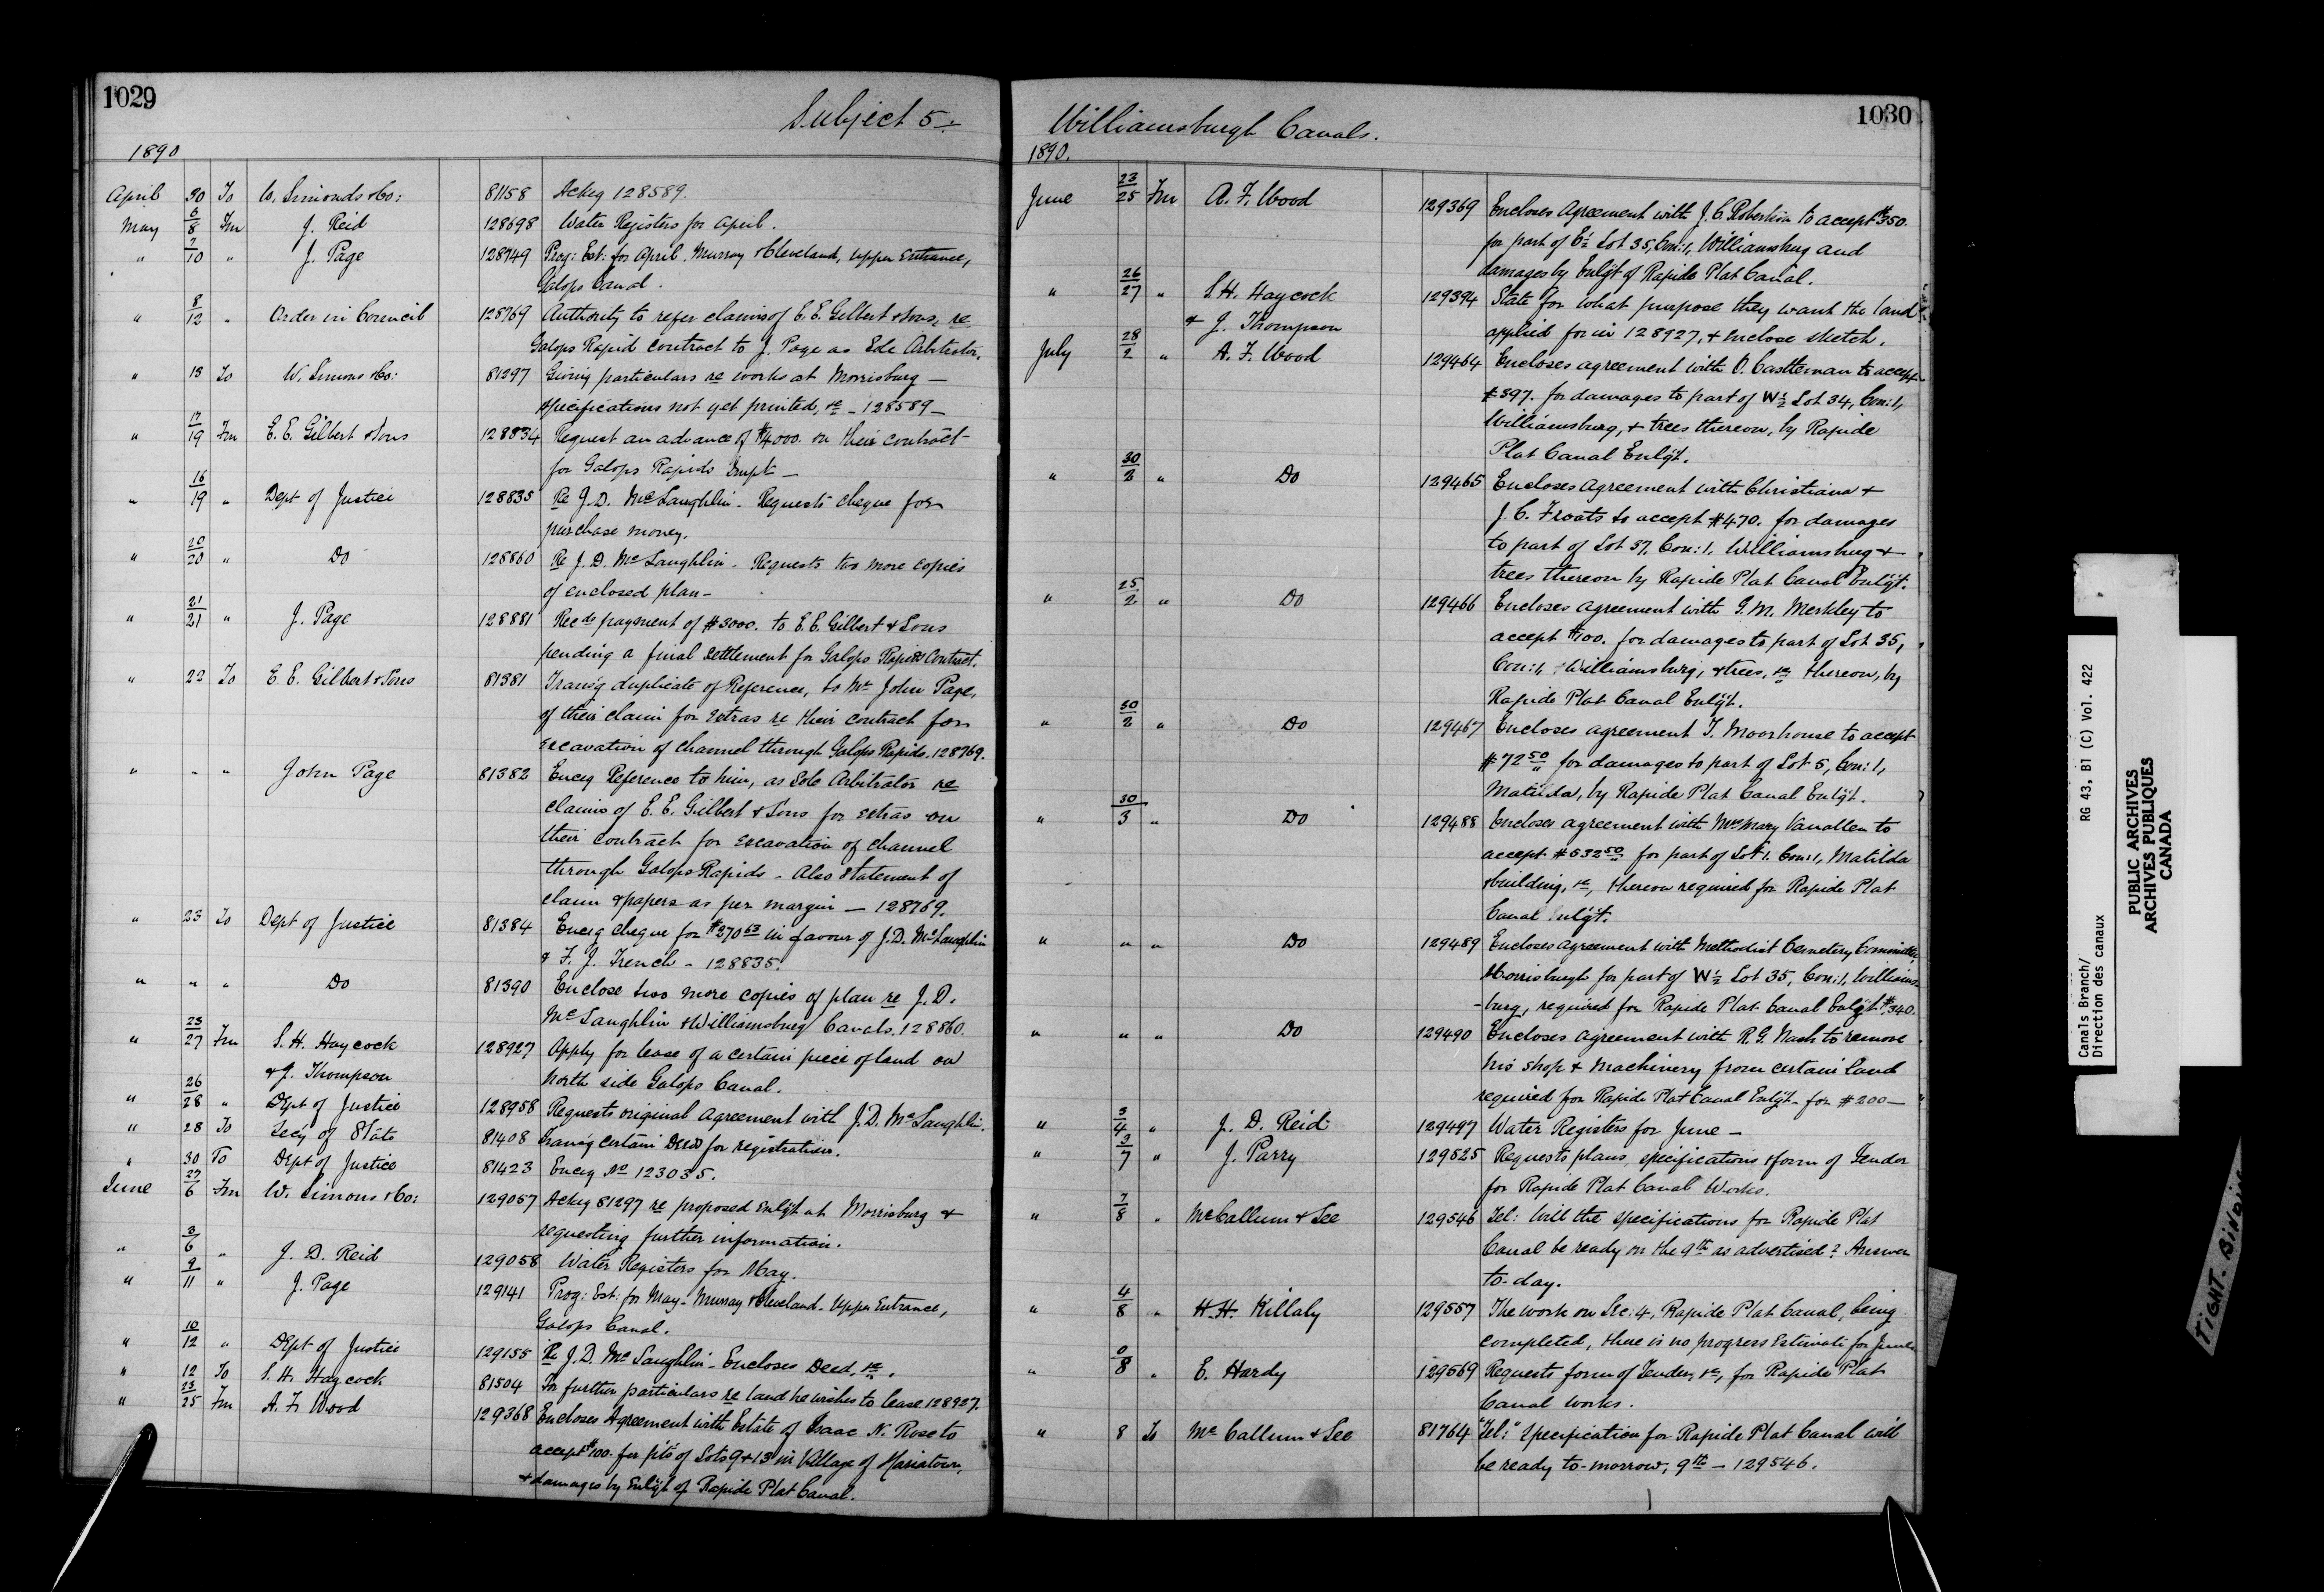 1029
Subject 5.
1890
April 30 To W. Simonds & Co: 81158 Ackg 128589.
May 6/8 Fm J. Reid 128698 Water Registers for April.
" 7/10 " J. Page 128749 Prog: Est: for April. Murray & Cleveland, Upper Entrance,
Galops Canal.
" 8/12 " Order in Council 128769 Authority to refer claims of E. E. Gilbert & Sons, re
Galops Rapid contract to J. Page as Sole Arbitrator.
" 13 To W. Simons & Co: 81297 Giving particulars re works at Morrisburg —
specifications not yet printed, &c - 128589 -
" 17/19 Fm E. E. Gilbert & Sons 128834 Request an advance of $4000. on their contract
for Galops Rapids Impt —
" 16/19 " Dept of Justice 128835 Re J. D. McLaughlin - Requests cheque for
purchase money.
" 20/20 " Do 128860 Re J. D. McLaughlin - Requests two more copies
of enclosed plan -
" 21/21 " J. Page 128881 Recds payment of $3000. to E. E. Gilbert & Sons
pending a final settlement for Galops Rapids Contract.
" 22 To E. E. Gilbert & Sons 81381 Transg duplicate of Reference, to Mr John Page,
of their claim for extras re their contract for
excavation of channel through Galops Rapids. 128769.
" " " John Page 81382 Encg Reference to him, as Sole Arbitrator re
claims of E. E. Gilbert & Sons for extras on
their contract for excavation of channel
through Galops Rapids - Also statement of
claim & papers as per margin — 128769.
" 23 To Dept of Justice 81384 Encg cheque for $270 63 in favour of J. D. McLaughlin
& F. J. French - 128835.
" " " Do 81390 Enclose two more copies of plan re J. D.
McLaughlin & Williamsburg Canals. 128860.
" 23/27 Fm S. H. Haycock 128927 Apply for lease of a certain piece of land on
& J. Thompson North side Galops Canal.
" 26/28 " Dept of Justice 128958 Requests original agreement with J. D. McLaughlin.
" 28 To Secy of State 81408 Transg certain Deed for registration.
" 30 To Dept of Justice 81423 Encg No 123035.
June 27/6 Fm W. Simons & Co: 129057 Ackg 81297 re proposed Enlgt at Morrisburg &
requesting further information.
" 3/6 " J. D. Reid 129058 Water Registers for May.
" 9/11 " J. Page 129141 Prog: Est: for May - Murray & Cleveland - Upper Entrance,
Galops Canal.
" 10/12 " Dept of Justice 129155 Re J. D. McLaughlin - Encloses Deed, &c.
" 12 To S. H. Haycock 81504 For further particulars re land he wishes to lease 128927.
" 23/25 Fm A. F. Wood 129368 Encloses Agreement with Estate of Isaac N. Rose to
accept $100. for pts of Lots 9 & 13 in Village of Mariatown,
& damages by Enlgt of Rapide Plat Canal.
1030
Williamsburgh Canals.
1890.
June 23/25 Fm A. F. Wood 129369 Encloses Agreement with J. C. Robertson to accept $350.
for part of E½ Lot 35, Con: 1, Williamsburg and
damages by Enlgt of Rapide Plat Canal.
" 26/27 " S. H. Haycock 129394 State for what purpose they want the land
& J. Thompson applied for in 128927, & enclose sketch.
July 28/2 " A. F. Wood 129464 Encloses agreement with O. Castleman to accept
$397. for damages to part of W½ Lot 34, Con: 1,
Williamsburg, & trees thereon, by Rapide
Plat Canal Enlgt.
" 30/2 " Do 129465 Encloses agreement with Christiana &
J. C. Froats to accept $470. for damages
to part of Lot 37, Con: 1, Williamsburg &
trees thereon by Rapide Plat Canal Enlgt.
" 25/2 " Do 129466 Encloses agreement with G. M. Merkley to
accept $100. for damages to part of Lot 35,
Con: 1, Williamsburg, & trees, &c thereon, by
Rapide Plat Canal Enlgt.
" 30/2 " Do 129467 Encloses agreement T. Moorhouse to accept
$72 50 for damages to part of Lot 5, Con: 1,
Matilda, by Rapide Plat Canal Enlgt.
" 30/3 " Do 129488 Encloses agreement with Mrs Mary Vanallen to
accept $532 50 for part of Lot 1. Con: 1, Matilda
& building, &c, thereon required for Rapide Plat
Canal Enlgt.
" " " Do 129489 Encloses agreement with Methodist Cemetery Committee,
Morrisburgh for part of W½ Lot 35, Con: 1, Williams-
-burg, required for Rapide Plat Canal Enlgt $340.
" " " Do 129490 Encloses agreement with R. G. Nash to remove
his shop & machinery from certain land
required for Rapide Plat Canal Enlgt - for $200 —
" 3/4 " J. D. Reid 129497 Water Registers for June —
" 3/7 " J. Parry 129525 Requests plans, specifications & form of Tender
for Rapide Plat Canal Works.
" 7/8 " McCallum & Lee 129546 Tel: Will the specifications for Rapide Plat
Canal be ready on the 9th as advertised? Answer
to-day.
" 4/8 " H. H. Killaly 129557 The work on Sec: 4, Rapide Plat Canal, being
completed, there is no progress Estimate for June
" 0/8 " E. Hardy 129569 Requests form of Tender, &c, for Rapide Plat
Canal works.
" 8 To McCallum & Lee 81764 "Tel:" Specification for Rapide Plat Canal will
be ready to-morrow, 9th — 129546.
Canals Branch/ RG 43, B1 (C) Vol. 422
Direction des canaux
PUBLIC ARCHIVES
ARCHIVES PUBLIQUES
CANADA
TIGHT BINDING